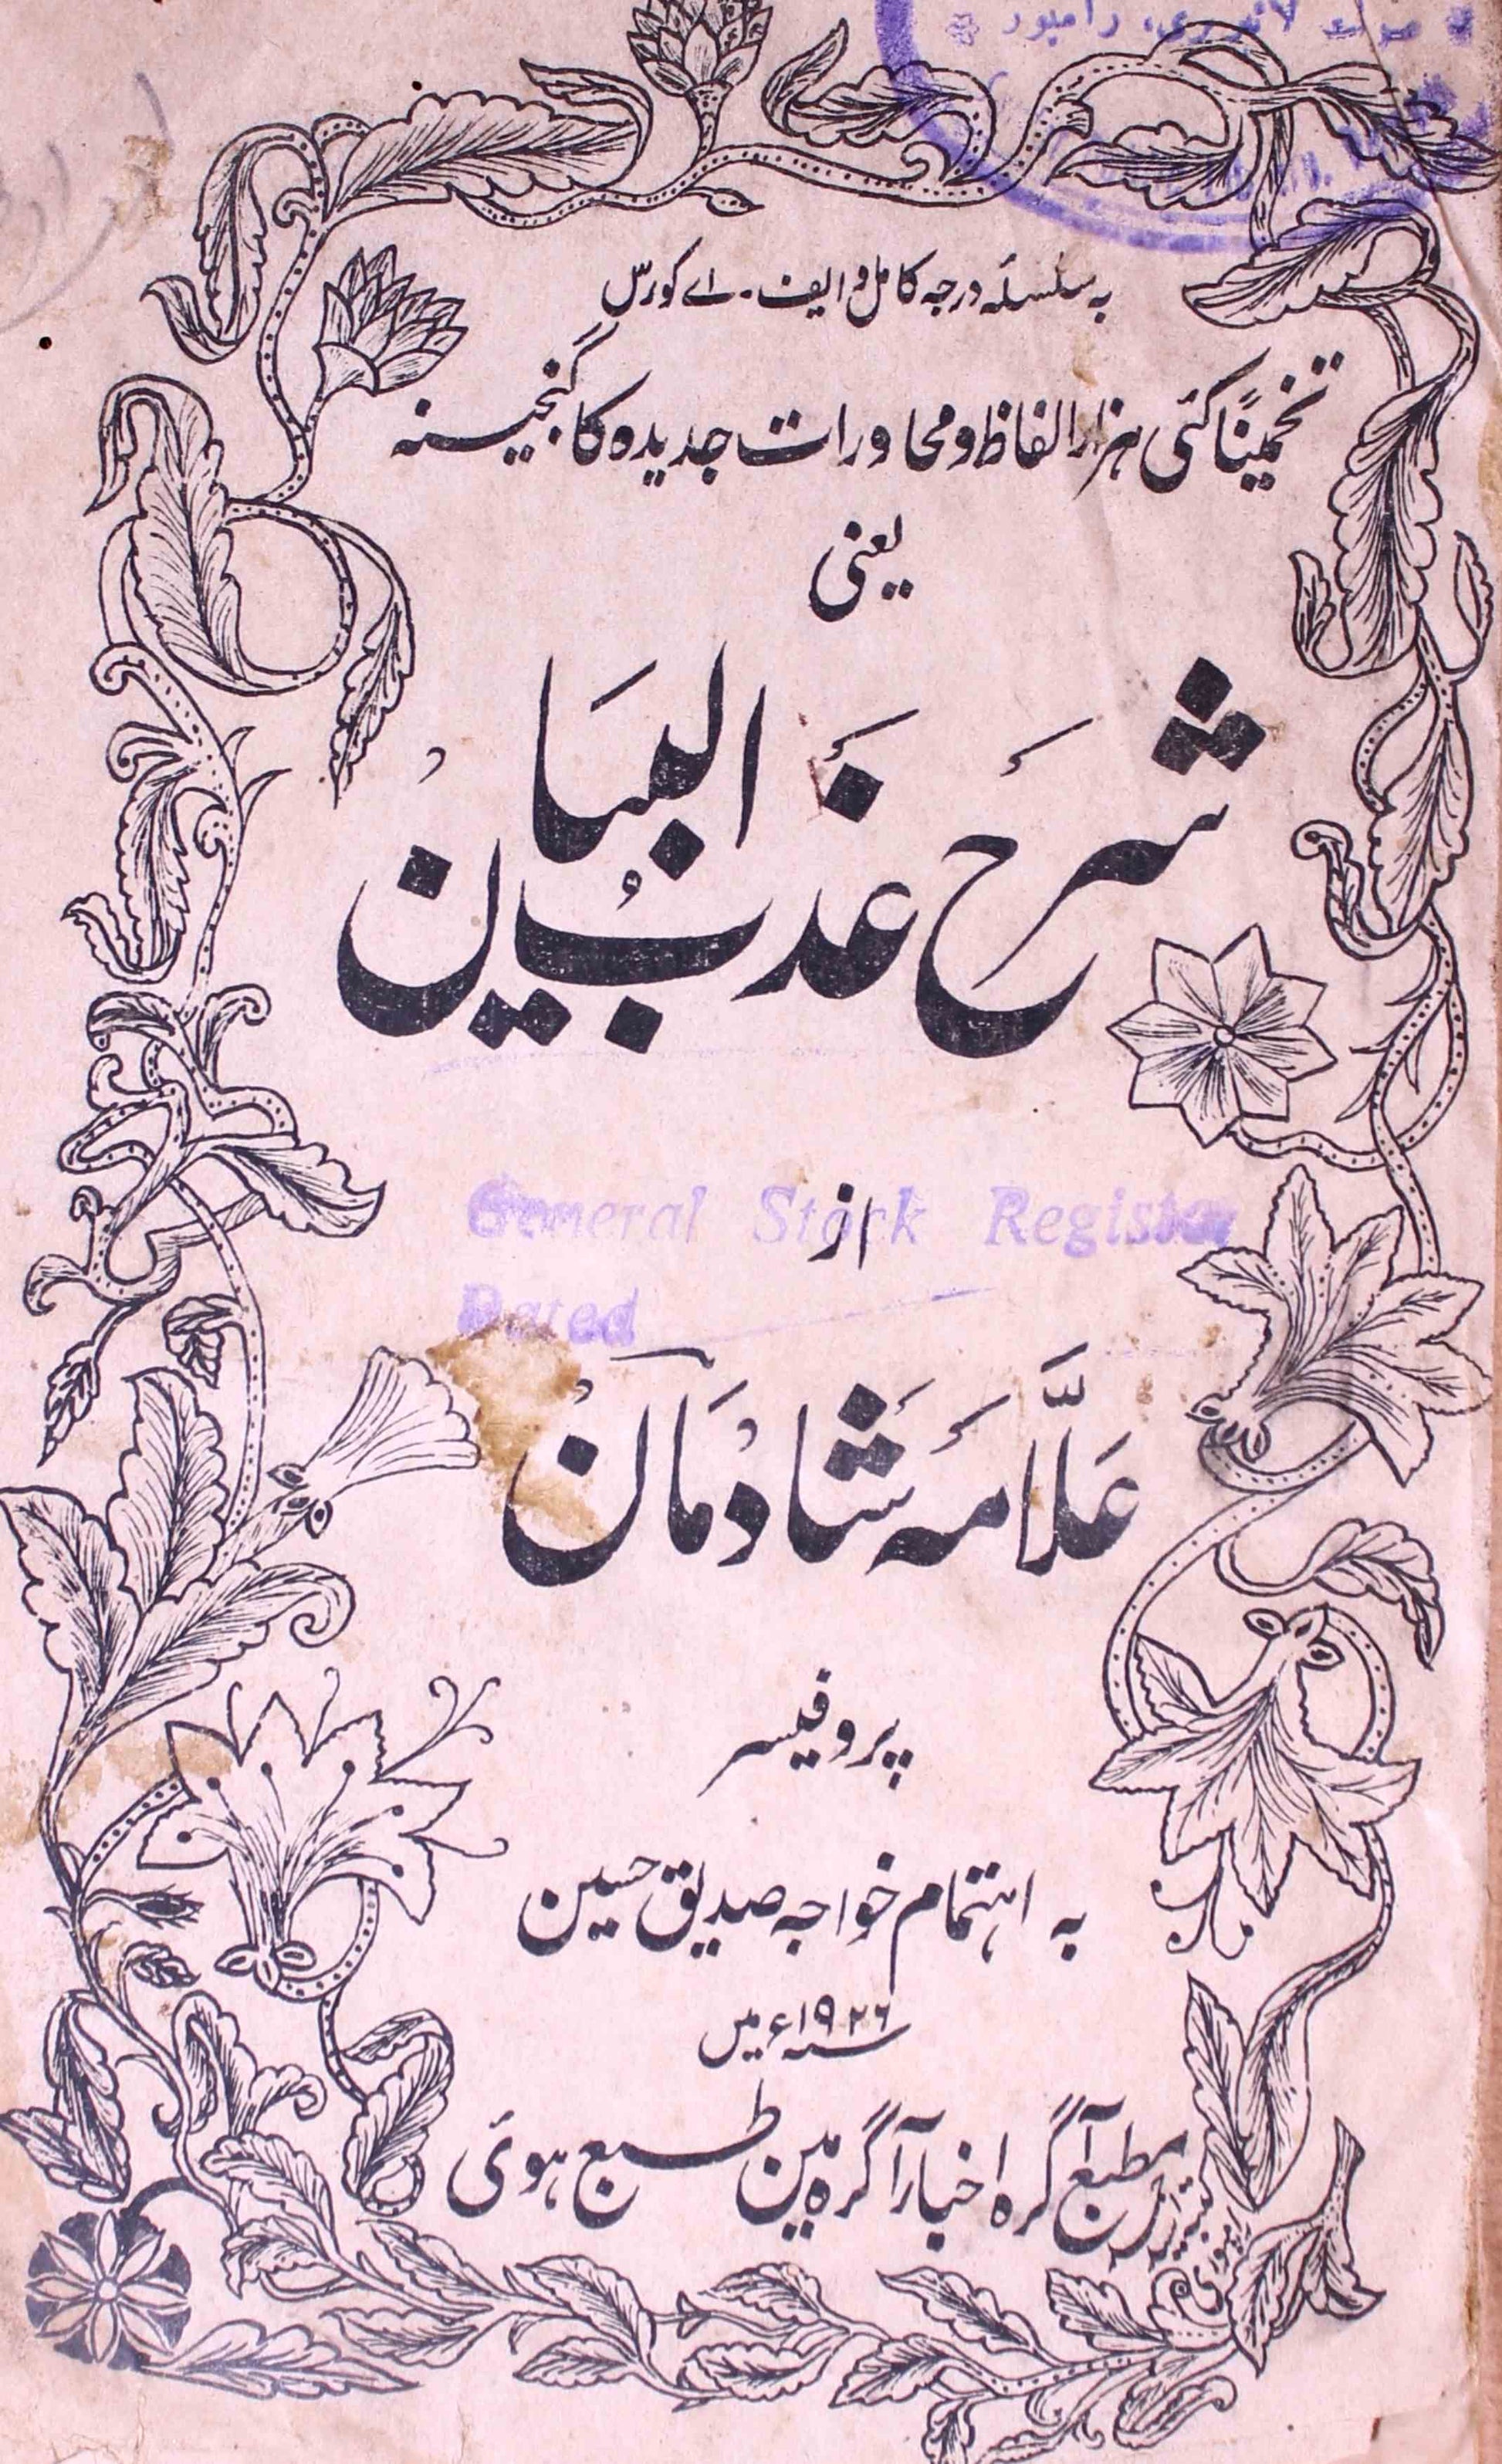 رامپور
بہ سلسلۂ درجہ کامل و ایف۔ اے کورس
تخمیناً کئی ہزار الفاظ و محاورات جدیدہ کا گنجینہ
یعنی
شَرَح عَذبُ البَیانُ
از
General Stock Register
Dated
عَلَّامَہ شَادْمَانُ
پروفیسر
بہ اہتمام خواجہ صدیق حسین
سنہ ۱۹۲۶ء میں
مطبع آگرہ اخبار آگرہ مین طبع ہوئی